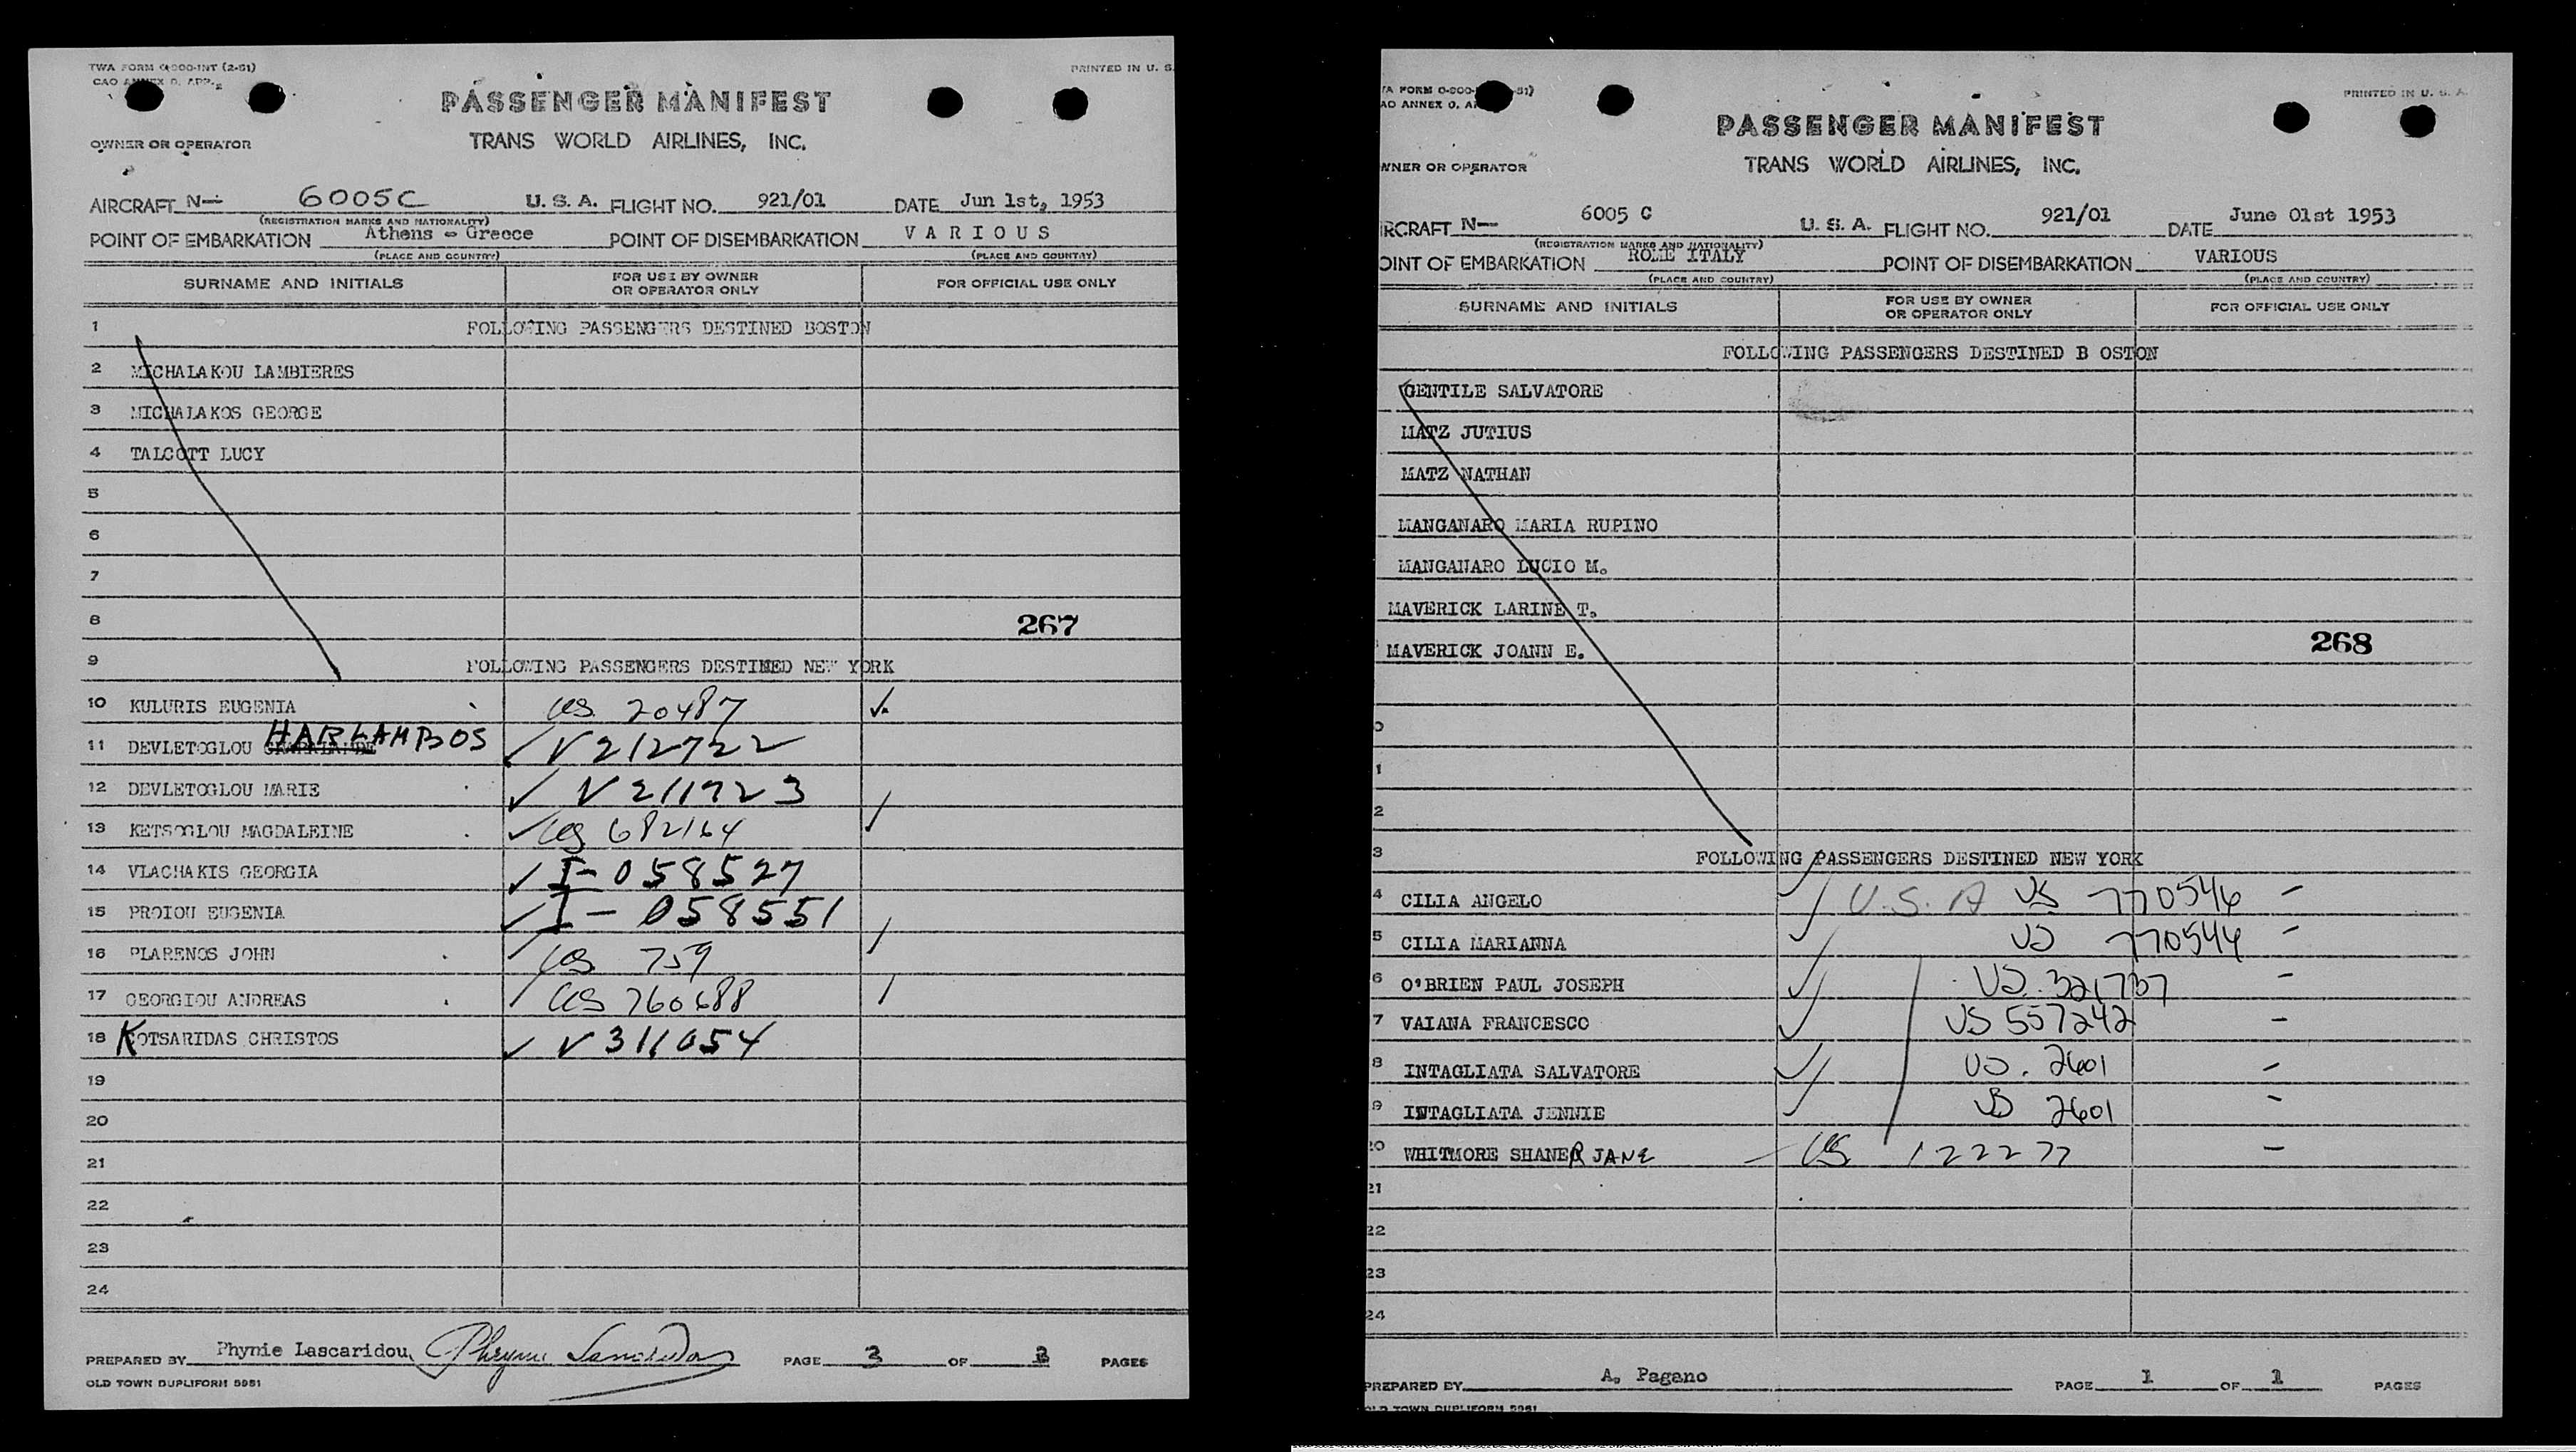 TWA FORM O-000-INT (2-51)
PRINTED IN U. S.
PASSENGER MANIFEST
TRANS WORLD AIRLINES, INC.
OWNER OR OPERATOR
AIRCRAFT N— 6005C U. S. A. FLIGHT NO. 921/01 DATE Jun 1st, 1953
(REGISTRATION MARKS AND NATIONALITY)
POINT OF EMBARKATION Athens - Greece POINT OF DISEMBARKATION VARIOUS
(PLACE AND COUNTRY) (PLACE AND COUNTRY)
SURNAME AND INITIALS FOR USE BY OWNER OR OPERATOR ONLY FOR OFFICIAL USE ONLY
1 FOLLOWING PASSENGERS DESTINED BOSTON
2 MICHALAKOU LAMBIERES
3 MICHALAKOS GEORGE
4 TALCOTT LUCY
5
6
7
8 267
9 FOLLOWING PASSENGERS DESTINED NEW YORK
10 KULURIS EUGENIA US 20487 ✓
11 DEVLETOGLOU HARLAMBOS ✓ V 212722
12 DEVLETOGLOU MARIE ✓ V 211723
13 KETSOGLOU MAGDALEINE ✓ US 682164 /
14 VLACHAKIS GEORGIA ✓ I-058527
15 PROIOU EUGENIA ✓ I-058551
16 PLARENOS JOHN ✓ US 759 /
17 GEORGIOU ANDREAS / US 760688 /
18 KOTSARIDAS CHRISTOS ✓ V 311054
19
20
21
22
23
24
PREPARED BY Phynie Lascaridou PAGE 3 OF 3 PAGES
OLD TOWN DUPLIFORM 5951
PRINTED IN U. S. A.
AO ANNEX 9, AP
PASSENGER MANIFEST
TRANS WORLD AIRLINES, INC.
WNER OR OPERATOR
IRCRAFT N— 6005 C U. S. A. FLIGHT NO. 921/01 DATE June 01st 1953
(REGISTRATION MARKS AND NATIONALITY)
OINT OF EMBARKATION ROME ITALY POINT OF DISEMBARKATION VARIOUS
(PLACE AND COUNTRY) (PLACE AND COUNTRY)
SURNAME AND INITIALS FOR USE BY OWNER OR OPERATOR ONLY FOR OFFICIAL USE ONLY
FOLLOWING PASSENGERS DESTINED B OSTON
GENTILE SALVATORE
MATZ JUTIUS
MATZ NATHAN
MANGANARO MARIA RUPINO
MANGANARO LUCIO M.
MAVERICK LARINE T.
MAVERICK JOANN E. 268
0
1
2
3 FOLLOWING PASSENGERS DESTINED NEW YORK
4 CILIA ANGELO ✓ U.S.A US 770546 –
5 CILIA MARIANNA ✓ US 770544 –
6 O'BRIEN PAUL JOSEPH ✓ US. 321737 –
7 VAIANA FRANCESCO ✓ US 557242 –
8 INTAGLIATA SALVATORE ✓ US. 2601 –
9 INTAGLIATA JENNIE ✓ US 2601 –
20 WHITMORE SHANER JANE – US 122277 –
21
22
23
24
PREPARED BY A. Pagano PAGE 1 OF 1 PAGES
OLD TOWN DUPLIFORM 5951